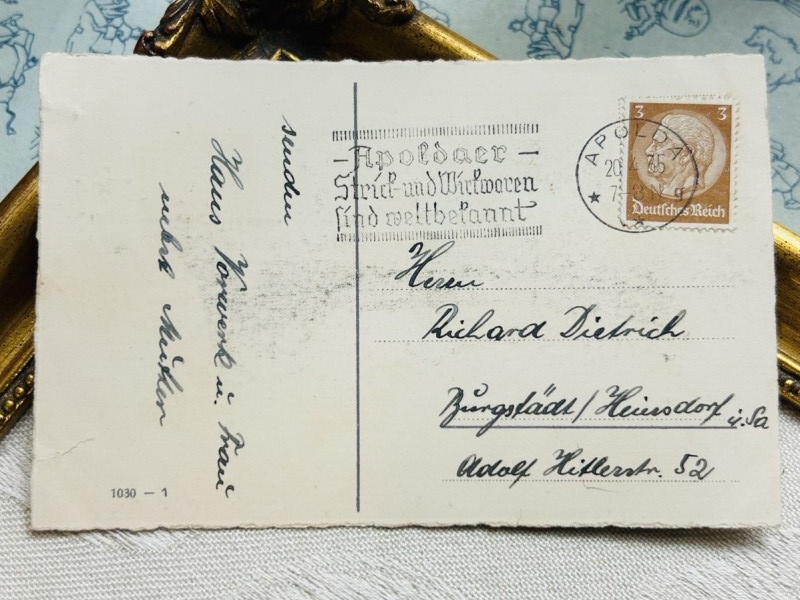 senden
Hans Vorwerk u. Frau
nebst Mutter
1030 – 1
– Apoldaer –
Strick- und Wirkwaren
sind weltbekannt
APOLDA
20. 4. 35
7-8
3 3
Deutsches Reich
Herrn
Richard Dietrich
Burgstädt/Heiersdorf i. Sa
Adolf Hitlerstr. 52